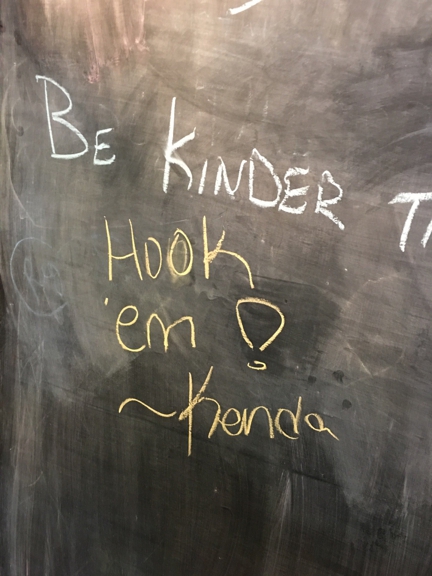 BE KINDER
HOOK
'em !
~Kenda